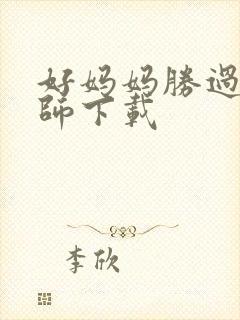 好妈妈勝過
師下載
李欣